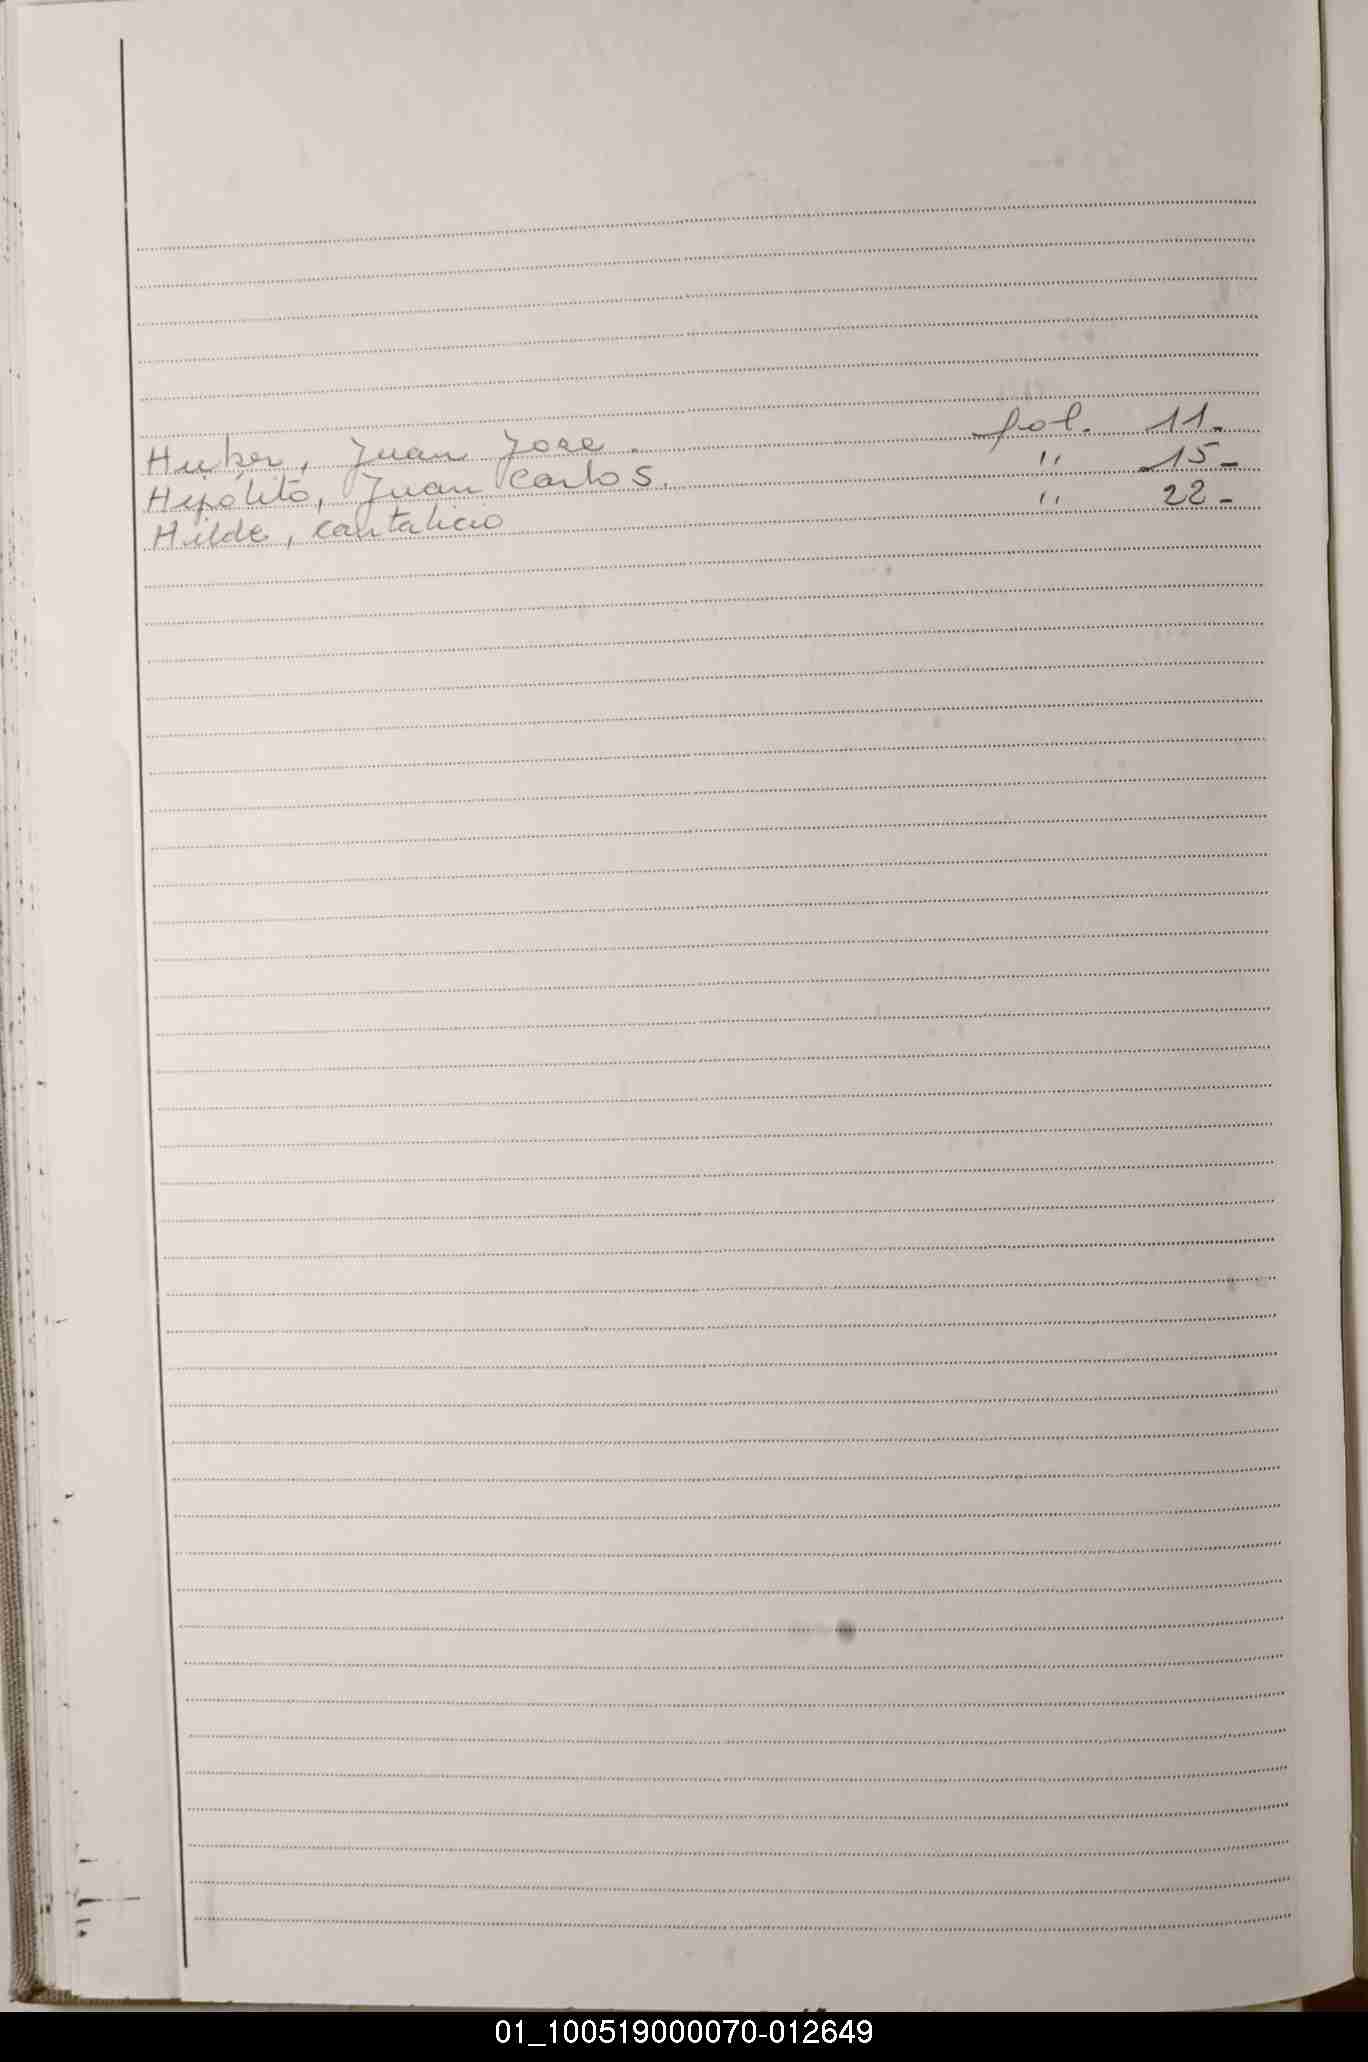 Huber, Juan Jose. fol. 11.
Hipólito, Juan Carlos. " 15-
Hilde, cantalicio " 22-
01_100519000070-012649